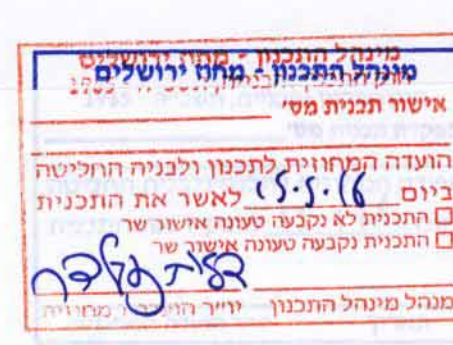 מינהל התכנון - מחוז ירושלים
מינהל התכנון - מחוז ירושלים
אישור תכנית מס'
הועדה המחוזית לתכנון ולבניה החליטה
ביום לאשר את התכנית
☐ התכנית לא נקבעה טעונה אישור שר
☐ התכנית נקבעה טעונה אישור שר
מנהל מינהל התכנון יו"ר הועדה המחוזית